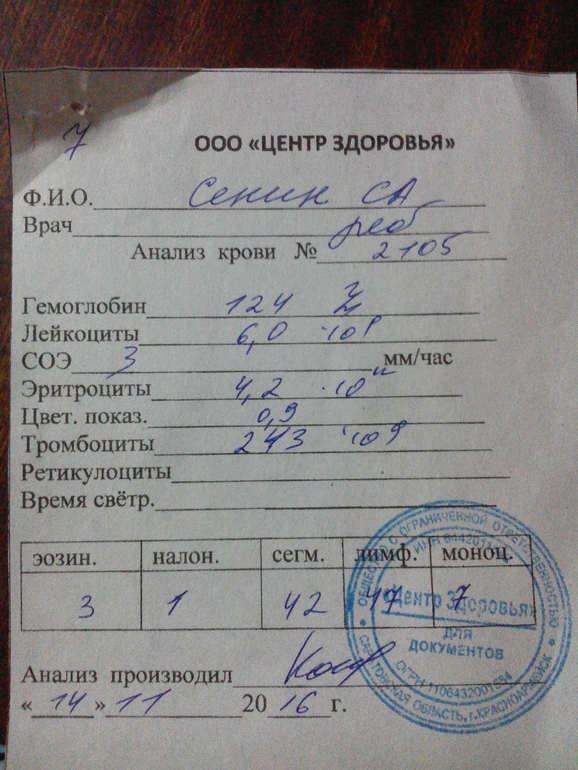 7
ООО «ЦЕНТР ЗДОРОВЬЯ»
Ф.И.О. Сенин СА
Врач реб
Анализ крови № 2105
Гемоглобин 124 г/л
Лейкоциты 6,0 ·10⁹
СОЭ 3 мм/час
Эритроциты 4,2 ·10¹²
Цвет. показ. 0,9
Тромбоциты 243 ·10⁹
Ретикулоциты
Время свётр.
эозин. налон. сегм. лимф. моноц.
3 1 42 47 7
ОБЩЕСТВО С ОГРАНИЧЕННОЙ ОТВЕТСТВЕННОСТЬЮ
ИНН
«Центр Здоровья»
ДЛЯ
ДОКУМЕНТОВ
ОГРН 1106432001554
САРАТОВСКАЯ ОБЛАСТЬ, г.КРАСНОАРМЕЙСК
Анализ производил
«14» 11 2016 г.